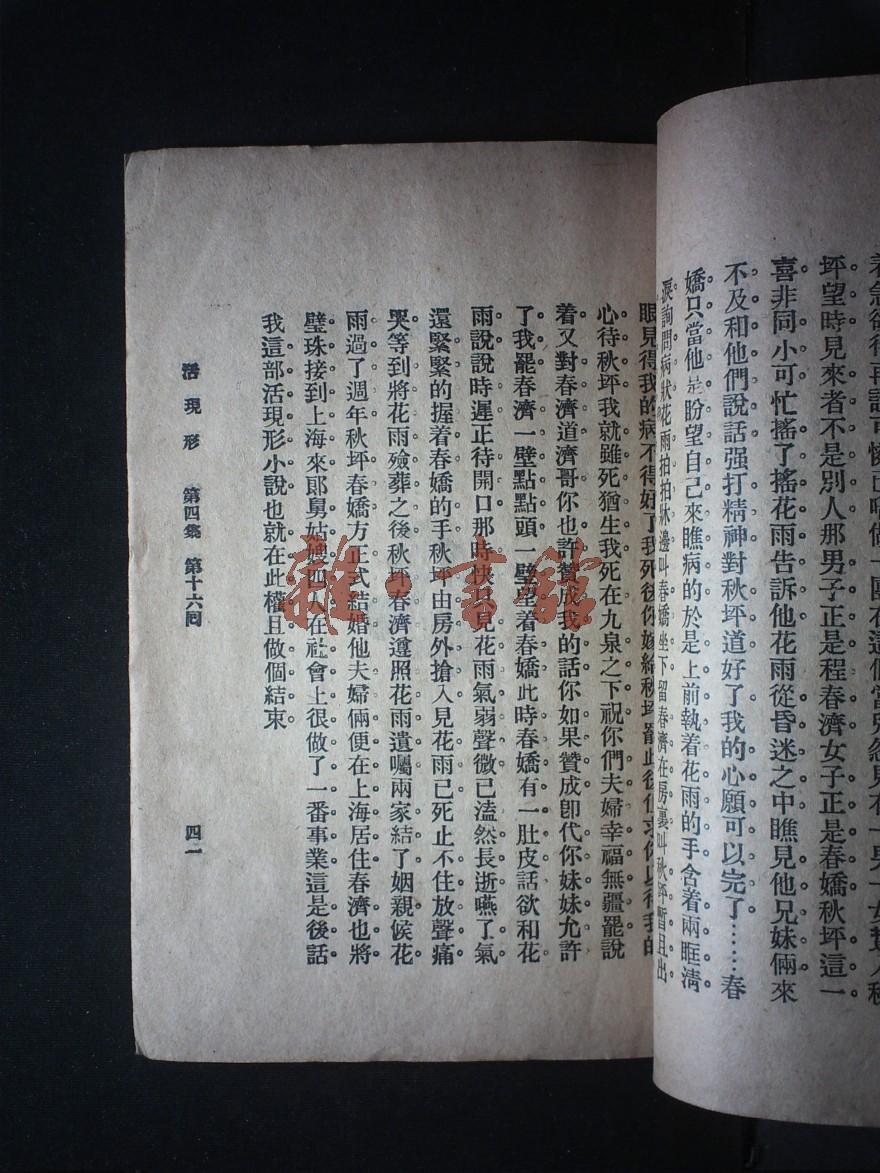 坪望時見來者不是別人那男子正是程春濟女子正是春嬌秋坪這一
喜非同小可忙搖了搖花雨告訴他花雨從昏迷之中瞧見他兄妹倆來
不及和他們說話强打精神對秋坪道好了我的心願可以完了……春
嬌只當他是盼望自己來瞧病的於是上前執着花雨的手含着兩眶淸
淚詢問病狀花雨拍拍牀邊叫春嬌坐下留春濟在房裏叫秋坪暫且出
眼見得我的病不得好了我死後你嫁給秋坪罷此後但求你以待我的
心待秋坪我就雖死猶生我死在九泉之下祝你們夫婦幸福無疆罷說
着又對春濟道濟哥你也許贊成我的話你如果贊成卽代你妹妹允許
了我罷春濟一壁點點頭一壁望着春嬌此時春嬌有一肚皮話欲和花
雨說說時遲正待開口那時快只見花雨氣弱聲微已溘然長逝嚥了氣
還緊緊的握着春嬌的手秋坪由房外搶入見花雨已死止不住放聲痛
哭等到將花雨殮葬之後秋坪春濟遵照花雨遺囑兩家結了姻親候花
雨過了週年秋坪春嬌方正式結婚他夫婦倆便在上海居住春濟也將
璧珠接到上海來郎舅姑嫂四人在社會上很做了一番事業這是後話
我這部活現形小說也就在此權且做個結束
活現形 第四集 第十六回 四一
雜書館